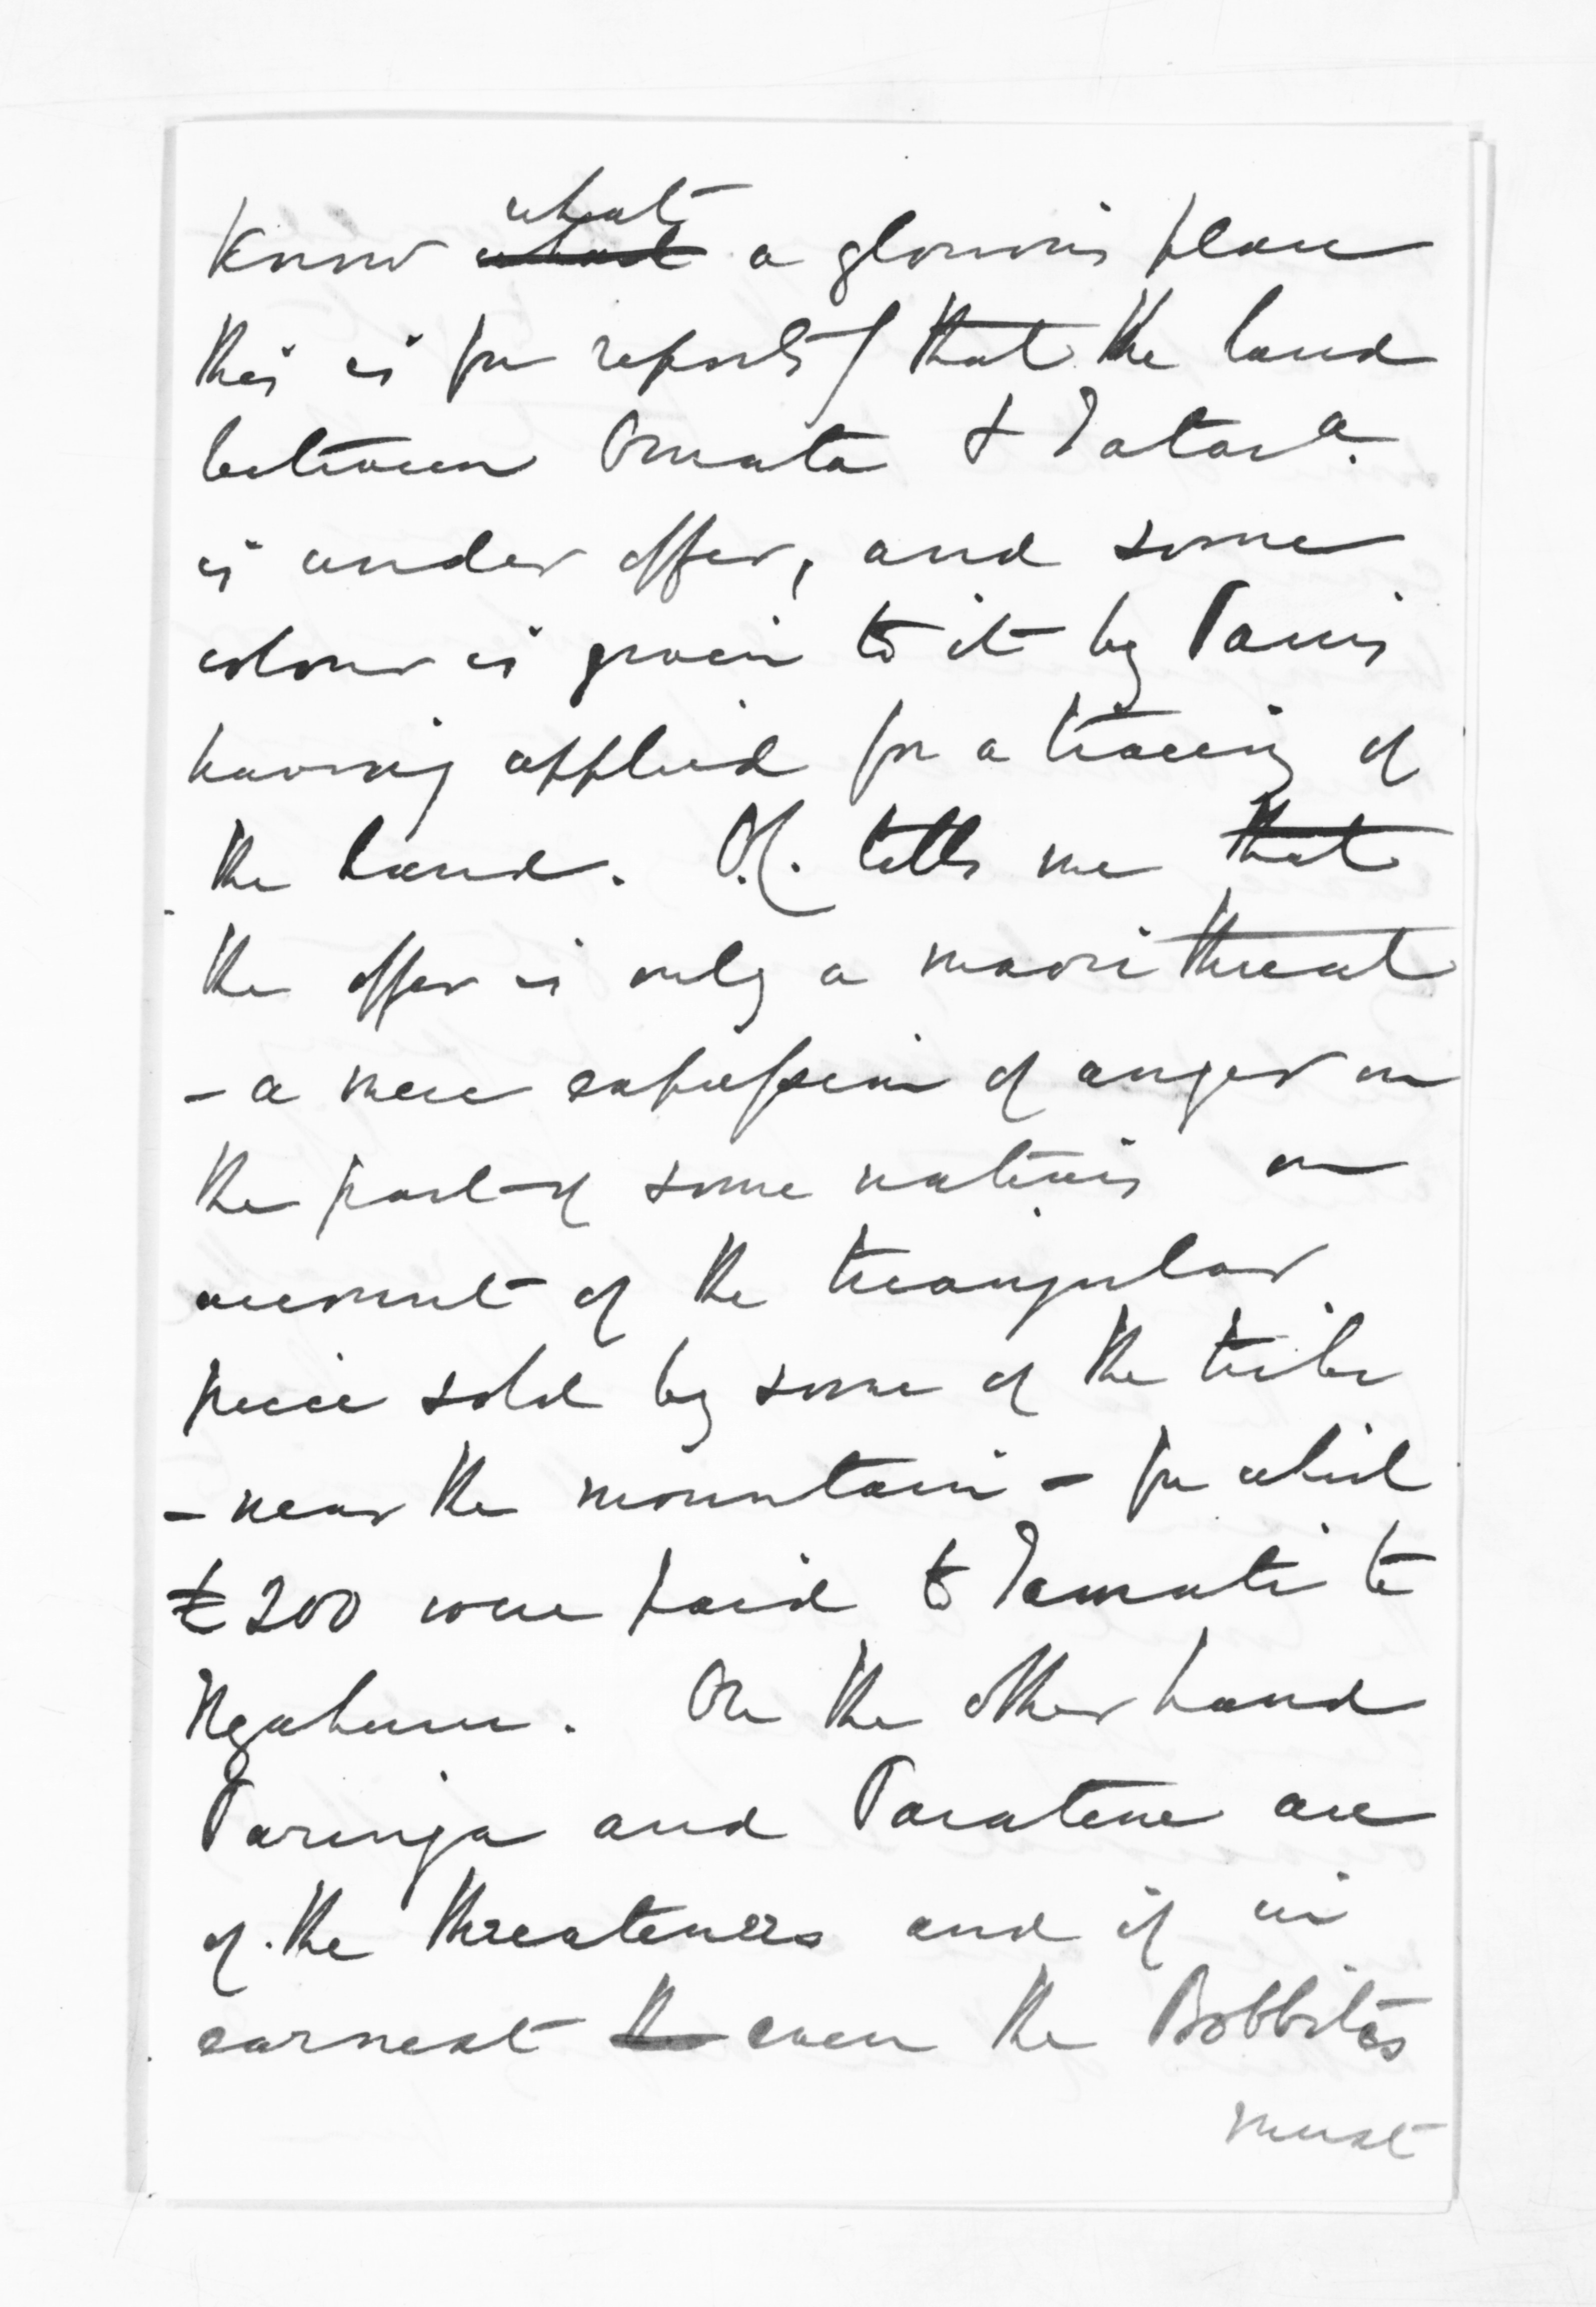 know what a glorious place
this is for reports) that the land
between Omata & Tatara.
is under offer, and some
colour is given to it by Parris
having applied for a tracing of
the land. O.C. tells me that
the offer is only a maori threat
- a mere expression of anger on
the part of some natives on
account of the triangular
piece sold by some of the tribe
- near the mountain - for which
£200 were paid to Tamati te
Ngahuru. On the other hand
Paringa and Paratene are
of the threateners and if in
earnest even the Bobbites
must